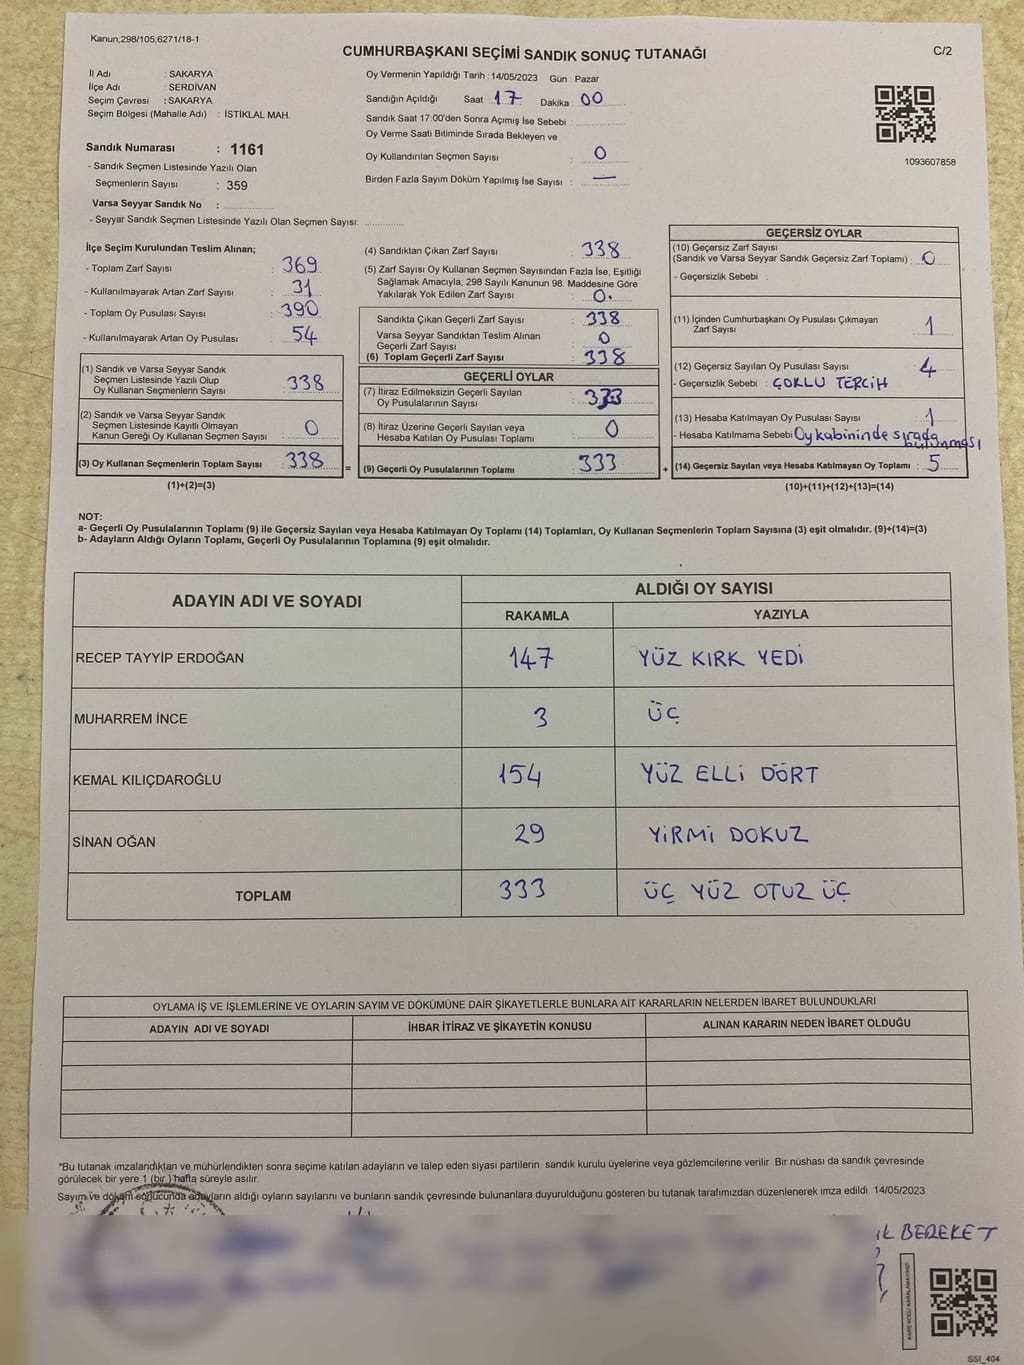 Kanun;298/105;6271/18-1
CUMHURBAŞKANI SEÇİMİ SANDIK SONUÇ TUTANAĞI
C/2
İl Adı : SAKARYA
İlçe Adı : SERDİVAN
Seçim Çevresi : SAKARYA
Seçim Bölgesi (Mahalle Adı) : İSTİKLAL MAH.
Sandık Numarası : 1161
- Sandık Seçmen Listesinde Yazılı Olan
Seçmenlerin Sayısı : 359
Varsa Seyyar Sandık No :
- Seyyar Sandık Seçmen Listesinde Yazılı Olan Seçmen Sayısı:
Oy Vermenin Yapıldığı Tarih : 14/05/2023 Gün : Pazar
Sandığın Açıldığı Saat : 17 Dakika : 00
Sandık Saat 17:00'den Sonra Açımış İse Sebebi :
Oy Verme Saati Bitiminde Sırada Bekleyen ve
Oy Kullandırılan Seçmen Sayısı : 0
Birden Fazla Sayım Döküm Yapılmış İse Sayısı : —
1093607858
İlçe Seçim Kurulundan Teslim Alınan;
- Toplam Zarf Sayısı : 369
- Kullanılmayarak Artan Zarf Sayısı : 31
- Toplam Oy Pusulası Sayısı : 390
- Kullanılmayarak Artan Oy Pusulası : 54
(1) Sandık ve Varsa Seyyar Sandık
Seçmen Listesinde Yazılı Olup
Oy Kullanan Seçmenlerin Sayısı : 338
(2) Sandık ve Varsa Seyyar Sandık
Seçmen Listesinde Kayıtlı Olmayan
Kanun Gereği Oy Kullanan Seçmen Sayısı : 0
(3) Oy Kullanan Seçmenlerin Toplam Sayısı : 338
(1)+(2)=(3)
=
(4) Sandıktan Çıkan Zarf Sayısı : 338
(5) Zarf Sayısı Oy Kullanan Seçmen Sayısından Fazla İse, Eşitliği
Sağlamak Amacıyla; 298 Sayılı Kanunun 98. Maddesine Göre
Yakılarak Yok Edilen Zarf Sayısı : 0.
Sandıkta Çıkan Geçerli Zarf Sayısı : 338
Varsa Seyyar Sandıktan Teslim Alınan
Geçerli Zarf Sayısı : 0
(6) Toplam Geçerli Zarf Sayısı : 338
GEÇERLİ OYLAR
(7) İtiraz Edilmeksizin Geçerli Sayılan
Oy Pusulalarının Sayısı : 333
(8) İtiraz Üzerine Geçerli Sayılan veya
Hesaba Katılan Oy Pusulası Toplamı : 0
(9) Geçerli Oy Pusulalarının Toplamı : 333
+
GEÇERSİZ OYLAR
(10) Geçersiz Zarf Sayısı
(Sandık ve Varsa Seyyar Sandık Geçersiz Zarf Toplamı) : 0
- Geçersizlik Sebebi :
(11) İçinden Cumhurbaşkanı Oy Pusulası Çıkmayan
Zarf Sayısı : 1
(12) Geçersiz Sayılan Oy Pusulası Sayısı : 4
- Geçersizlik Sebebi : ÇOKLU TERCİH
(13) Hesaba Katılmayan Oy Pusulası Sayısı : 1
- Hesaba Katılmama Sebebi : Oy kabininde sırada
bulunması
(14) Geçersiz Sayılan veya Hesaba Katılmayan Oy Toplamı : 5
(10)+(11)+(12)+(13)=(14)
NOT:
a- Geçerli Oy Pusulalarının Toplamı (9) ile Geçersiz Sayılan veya Hesaba Katılmayan Oy Toplamı (14) Toplamları, Oy Kullanan Seçmenlerin Toplam Sayısına (3) eşit olmalıdır. (9)+(14)=(3)
b- Adayların Aldığı Oyların Toplamı, Geçerli Oy Pusulalarının Toplamına (9) eşit olmalıdır.
ADAYIN ADI VE SOYADI ALDIĞI OY SAYISI
RAKAMLA YAZIYLA
RECEP TAYYİP ERDOĞAN 147 YÜZ KIRK YEDİ
MUHARREM İNCE 3 ÜÇ
KEMAL KILIÇDAROĞLU 154 YÜZ ELLİ DÖRT
SİNAN OĞAN 29 YİRMİ DOKUZ
TOPLAM 333 ÜÇ YÜZ OTUZ ÜÇ
OYLAMA İŞ VE İŞLEMLERİNE VE OYLARIN SAYIM VE DÖKÜMÜNE DAİR ŞİKAYETLERLE BUNLARA AİT KARARLARIN NELERDEN İBARET BULUNDUKLARI
ADAYIN ADI VE SOYADI İHBAR İTİRAZ VE ŞİKAYETİN KONUSU ALINAN KARARIN NEDEN İBARET OLDUĞU
*Bu tutanak imzalandıktan ve mühürlendikten sonra seçime katılan adayların ve talep eden siyasi partilerin sandık kurulu üyelerine veya gözlemcilerine verilir. Bir nüshası da sandık çevresinde
görülecek bir yere 1 (bir ) hafta süreyle asılır.
Sayım ve döküm sonucunda adayların aldığı oyların sayılarını ve bunların sandık çevresinde bulunanlara duyurulduğunu gösteren bu tutanak tarafımızdan düzenlenerek imza edildi. 14/05/2023
BEREKET
KARE KODU KARALAMAYINIZ!
SSI_404